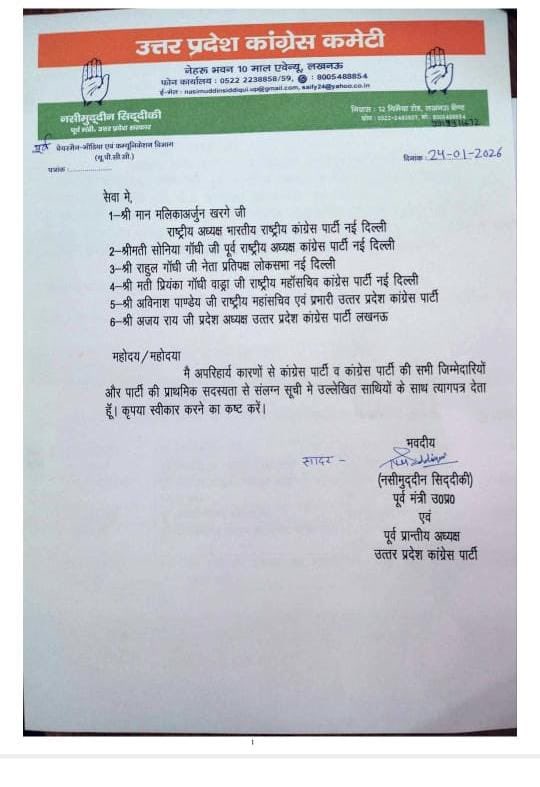 उत्तर प्रदेश कांग्रेस कमेटी
नेहरू भवन 10 माल एवेन्यू, लखनऊ
फोन कार्यालय : 0522 2238858/59, : 8005488854
ई-मेल : nasimuddinsiddiqui.up@gmail.com, saify24@yahoo.co.in
नसीमुद्दीन सिद्दीकी
पूर्व मंत्री, उत्तर प्रदेश सरकार
निवास : 12 लखनऊ कैण्ट
फोन : मो: 8005488854
पूर्व चेयरमैन-मीडिया एवं कम्युनिकेशन विभाग
(यू.पी.सी.सी.)
पत्रांक :....................
दिनांक : 24-01-2026
सेवा मे,
1-श्री मान मलिकाअर्जुन खरगे जी
राष्ट्रीय अध्यक्ष भारतीय राष्ट्रीय कांग्रेस पार्टी नई दिल्ली
2-श्रीमती सोनिया गाँधी जी पूर्व राष्ट्रीय अध्यक्ष कांग्रेस पार्टी नई दिल्ली
3-श्री राहुल गाँधी जी नेता प्रतिपक्ष लोकसभा नई दिल्ली
4-श्री मती प्रियंका गाँधी वाड्रा जी राष्ट्रीय महाँसचिव कांग्रेस पार्टी नई दिल्ली
5-श्री अविनाश पाण्डेय जी राष्ट्रीय महांसचिव एवं प्रभारी उत्तर प्रदेश कांग्रेस पार्टी
6-श्री अजय राय जी प्रदेश अध्यक्ष उत्तर प्रदेश कांग्रेस पार्टी लखनऊ
महोदय/महोदया
मै अपरिहार्य कारणों से कांग्रेस पार्टी व कांग्रेस पार्टी की सभी जिम्मेदारियों
और पार्टी की प्राथमिक सदस्यता से संलग्न सूची मे उल्लेखित साथियों के साथ त्यागपत्र देता
हूँ। कृपया स्वीकार करने का कष्ट करें।
भवदीय
सादर -
(नसीमुद्दीन सिद्दीकी)
पूर्व मंत्री उ०प्र०
एवं
पूर्व प्रान्तीय अध्यक्ष
उत्तर प्रदेश कांग्रेस पार्टी
1